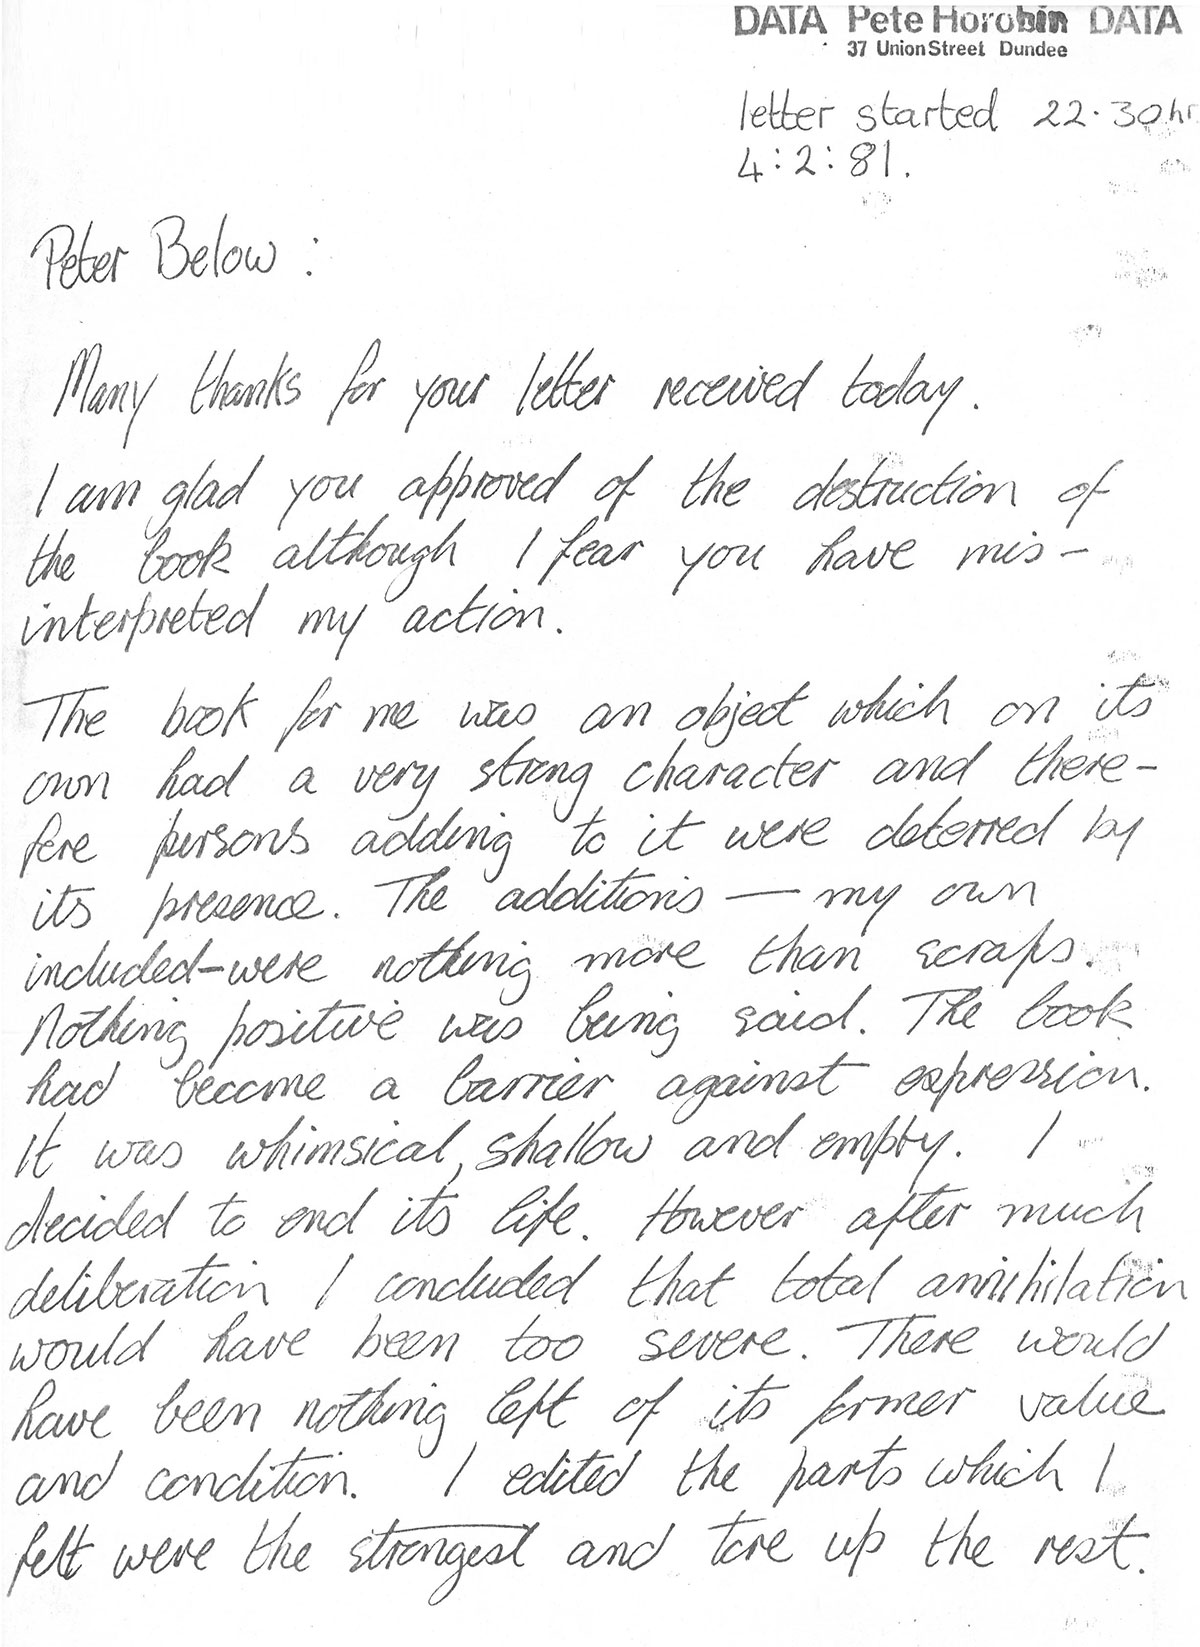 DATA Pete Horobin DATA
37 Union Street Dundee
letter started 22.30hr
4:2:81.
Peter Below :
Many thanks for your letter received today.
I am glad you approved of the destruction of
the book although I fear you have mis-
interpreted my action.
The book for me was an object which on its
own had a very strong character and there-
fore persons adding to it were deterred by
its presence. The additions — my own
included – were nothing more than scraps.
Nothing positive was being said. The book
had become a barrier against expression.
It was whimsical, shallow and empty. I
decided to end its life. However after much
deliberation I concluded that total annihilation
would have been too severe. There would
have been nothing left of its former value
and condition. I edited the parts which I
felt were the strongest and tore up the rest.